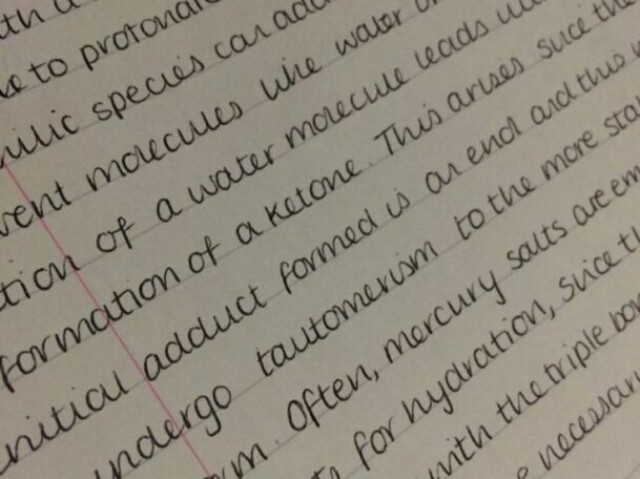 to protonat
species can add
molecules like water
of a water molecule leads
formation of a ketone. This arises since the
initial adduct formed is an enol and this
undergo tautomerism to the more sta
Often, mercury salts are em
for hydration, since t
with the triple bo
necessar